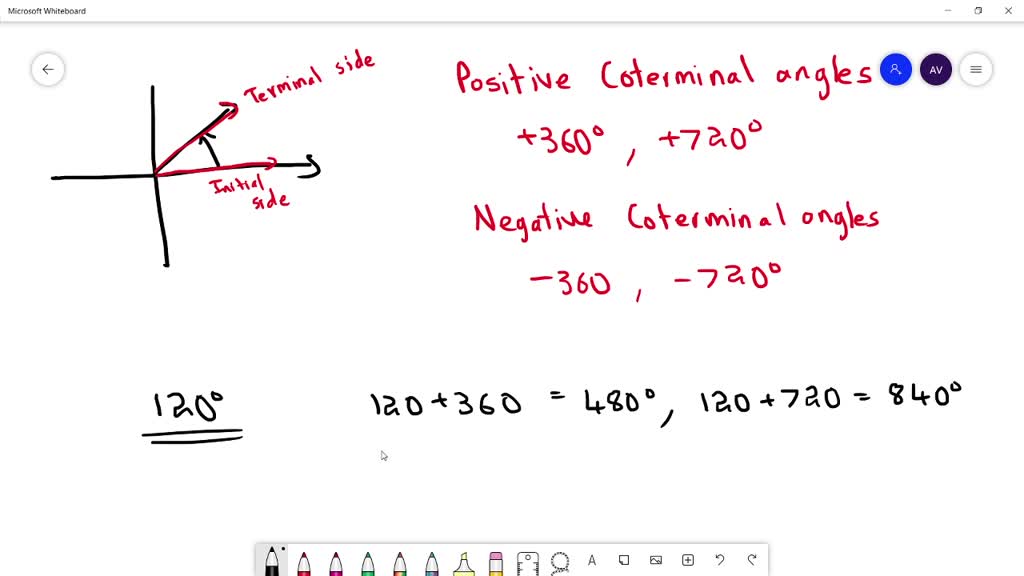 Microsoft Whiteboard
AV
Terminal side
Initial
side
Positive Coterminal angles
+360°, +720°
Negative Coterminal angles
-360, -720°
120°
120+360 = 480°, 120+720 = 840°
A